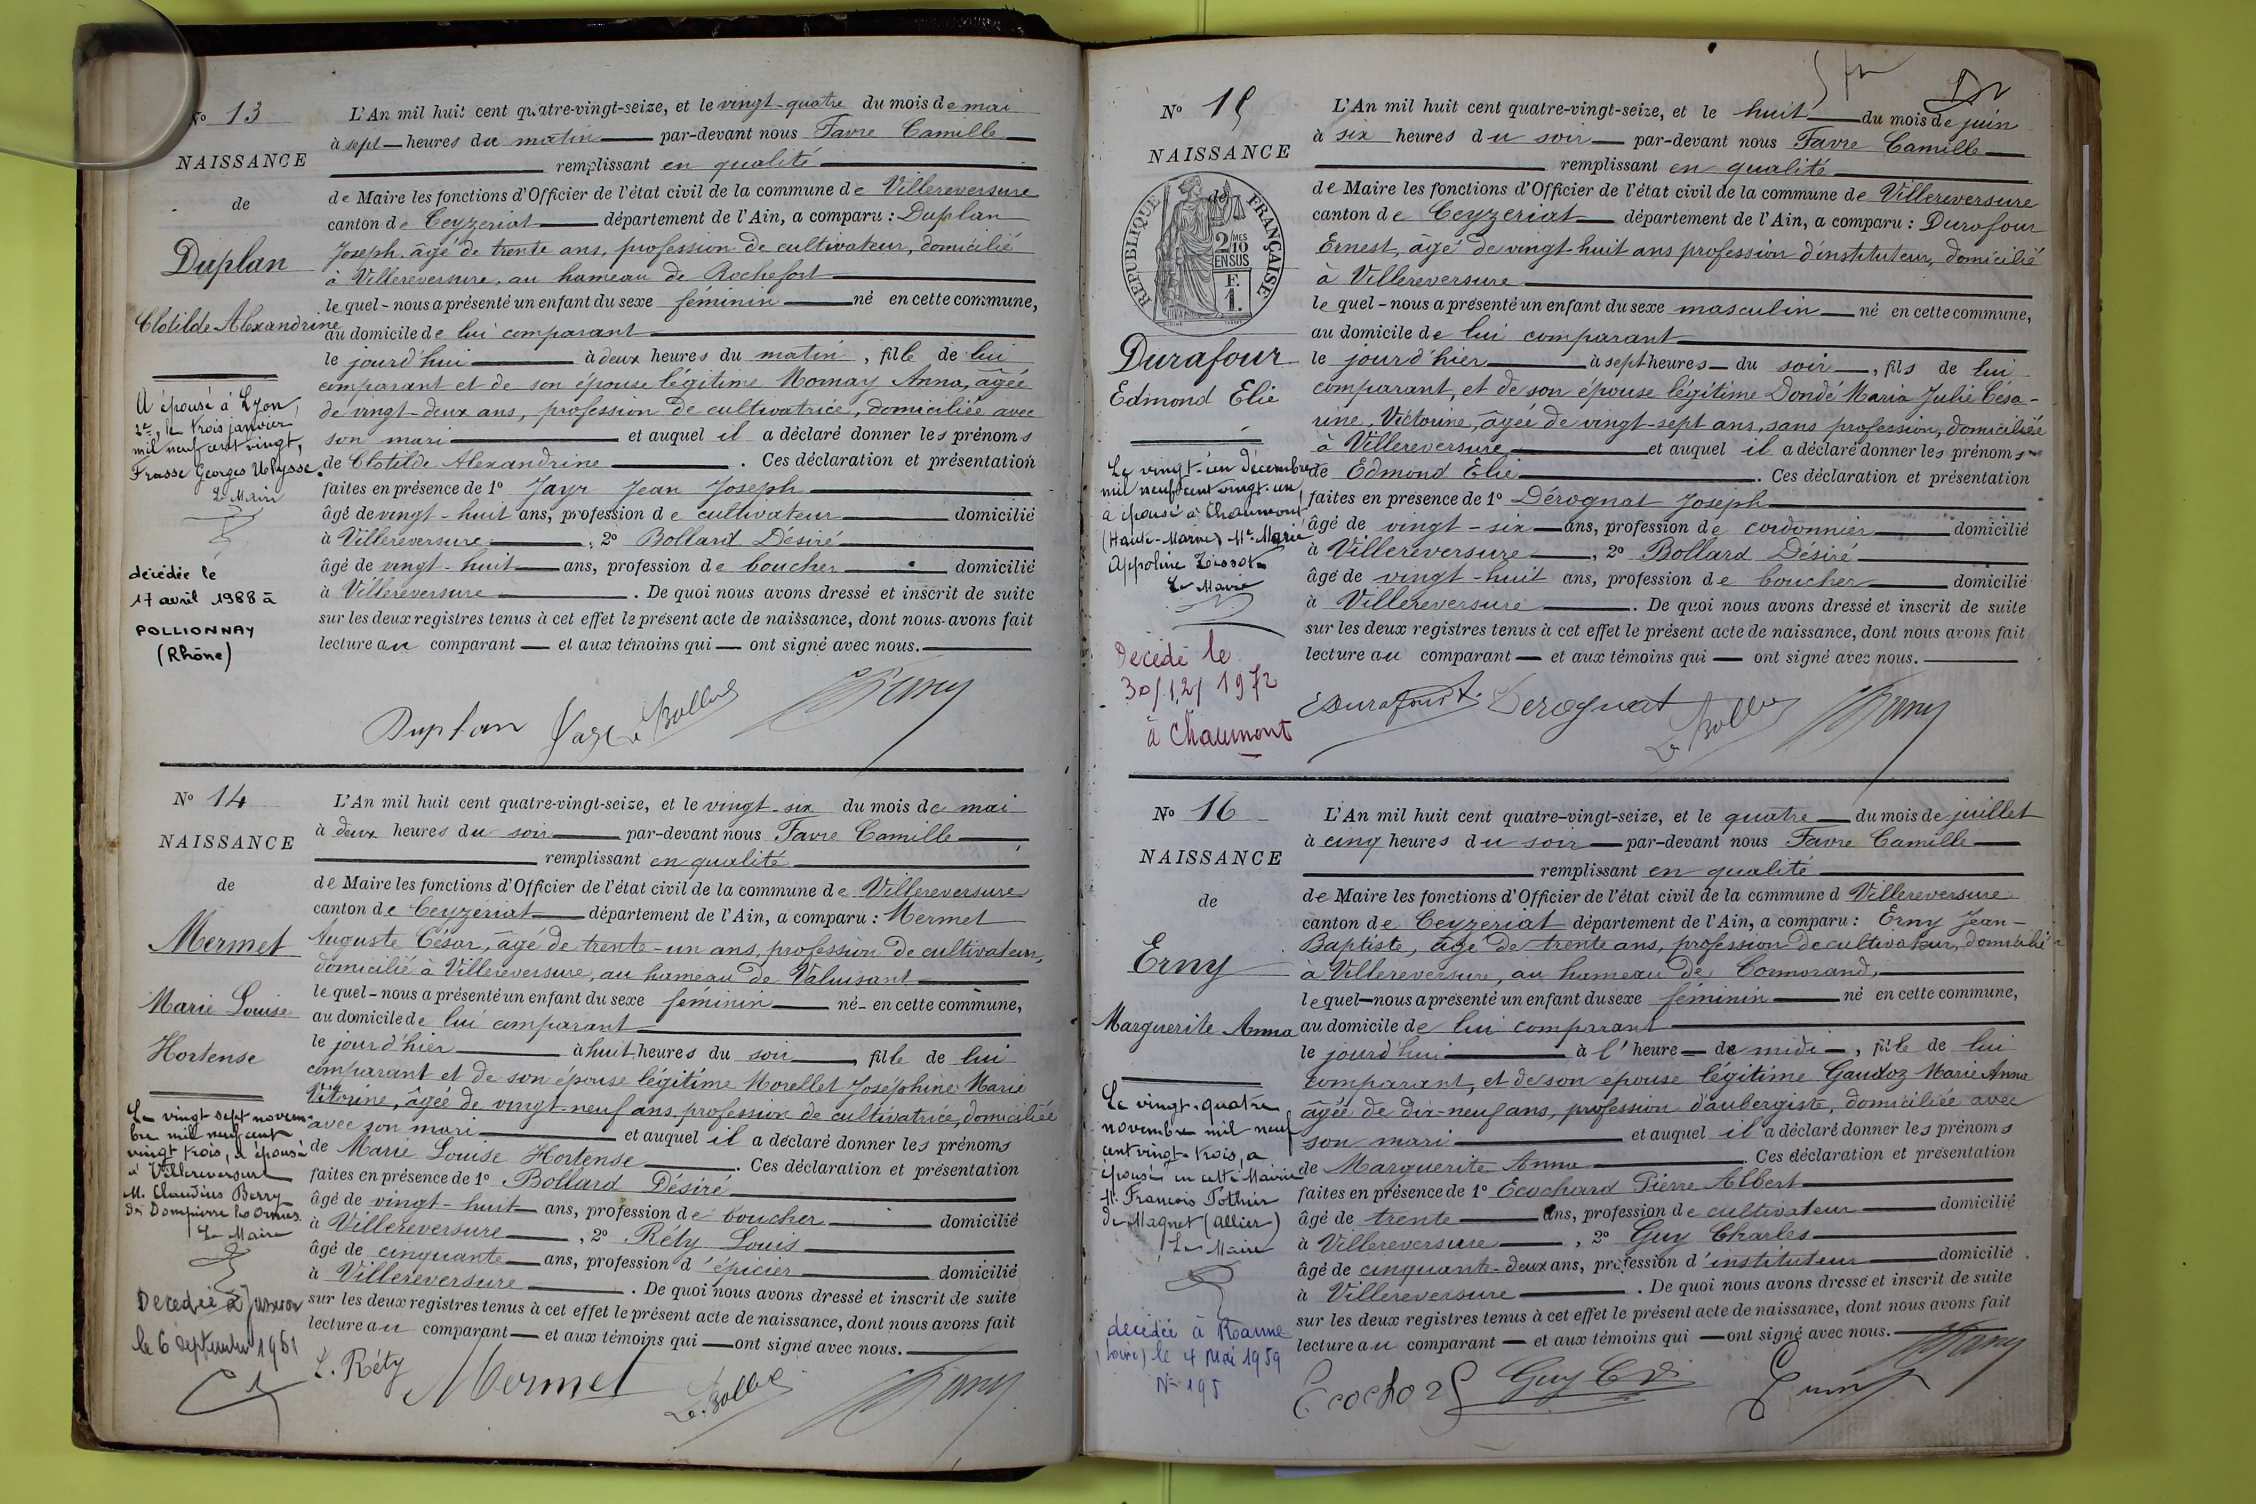 No 13
NAISSANCE
de
Duplan
Clotilde Alexandrine
A épousé à Lyon,
le trois janvier
mil neuf cent vingt,
Frasse Georges Ulysse.
Le Maire
décédée le
17 avril 1988 à
POLLIONNAY
(Rhône)
L'An mil huit cent quatre-vingt-seize, et le vingt-quatre du mois de mai
à sept heures du matin par-devant nous Favre Camille
remplissant en qualité
de Maire les fonctions d'Officier de l'état civil de la commune de Villereversure
canton de Ceyzeriat département de l'Ain, a comparu : Duplan
Joseph, âgé de trente ans, profession de cultivateur, domicilié
à Villereversure, au hameau de Rochefort
le quel - nous a présenté un enfant du sexe féminin né en cette commune,
au domicile de lui comparant
le jourd'hui à deux heures du matin, fille de lui
comparant et de son épouse légitime Mornay Anna, âgée
de vingt-deux ans, profession de cultivatrice, domiciliée avec
son mari et auquel il a déclaré donner les prénoms
de Clotilde Alexandrine. Ces déclaration et présentation
faites en présence de 1° Jayr Jean Joseph
âgé de vingt-huit ans, profession de cultivateur domicilié
à Villereversure, 2° Bollard Désiré
âgé de vingt-huit ans, profession de boucher domicilié
à Villereversure. De quoi nous avons dressé et inscrit de suite
sur les deux registres tenus à cet effet le présent acte de naissance, dont nous avons fait
lecture au comparant et aux témoins qui ont signé avec nous.
Duplan
No 14
NAISSANCE
de
Mermet
Marie Louise
Hortense
Le vingt sept novem-
bre mil neuf cent
vingt trois, a épousé
à Villereversure
M. Claudius Berry
de Dompierre les Ormes
Le Maire
Décédée à Jasseron
le 6 septembre 1961
L'An mil huit cent quatre-vingt-seize, et le vingt-six du mois de mai
à deux heures du soir par-devant nous Favre Camille
remplissant en qualité
de Maire les fonctions d'Officier de l'état civil de la commune de Villereversure
canton de Ceyzeriat département de l'Ain, a comparu : Mermet
Auguste César, âgé de trente-un ans, profession de cultivateur,
domicilié à Villereversure, au hameau de Valuisant
le quel - nous a présenté un enfant du sexe féminin né - en cette commune,
au domicile de lui comparant
le jourd'hier à huit heures du soir, fille de lui
comparant et de son épouse légitime Morellet Joséphine Marie
Vitorine, âgée de vingt-neuf ans, profession de cultivatrice, domiciliée
avec son mari et auquel il a déclaré donner les prénoms
de Marie Louise Hortense. Ces déclaration et présentation
faites en présence de 1° Bollard Désiré
âgé de vingt-huit ans, profession de boucher domicilié
à Villereversure, 2° Réty Louis
âgé de cinquante ans, profession d'épicier domicilié
à Villereversure. De quoi nous avons dressé et inscrit de suite
sur les deux registres tenus à cet effet le présent acte de naissance, dont nous avons fait
lecture au comparant et aux témoins qui ont signé avec nous.
L. Réty Mermet
No 15
NAISSANCE
de
REPUBLIQUE FRANÇAISE
2/10 MES
EN SUS
F.
1.
Durafour
Edmond Elie
Le vingt-un décembre
mil neuf cent vingt-un,
a épousé à Chaumont
(Haute-Marne) Mle Marie
Appoline Tissot
Le Maire
Décédé le
30/12/1972
à Chaumont
L'An mil huit cent quatre-vingt-seize, et le huit du mois de juin
à six heures du soir par-devant nous Favre Camille
remplissant en qualité
de Maire les fonctions d'Officier de l'état civil de la commune de Villereversure
canton de Ceyzeriat département de l'Ain, a comparu : Durafour
Ernest, âgé de vingt-huit ans profession d'instituteur, domicilié
à Villereversure
le quel - nous a présenté un enfant du sexe masculin né en cette commune,
au domicile de lui comparant
le jourd'hier à sept heures du soir, fils de lui
comparant, et de son épouse légitime Dondé Maria Julie Césa-
rine, Victorine, âgée de vingt-sept ans, sans profession, domiciliée
à Villereversure et auquel il a déclaré donner les prénoms
de Edmond Elie. Ces déclaration et présentation
faites en présence de 1° Dérognat Joseph
âgé de vingt-six ans, profession de cordonnier domicilié
à Villereversure, 2° Bollard Désiré
âgé de vingt-huit ans, profession de boucher domicilié
à Villereversure. De quoi nous avons dressé et inscrit de suite
sur les deux registres tenus à cet effet le présent acte de naissance, dont nous avons fait
lecture au comparant et aux témoins qui ont signé avec nous.
EDurafour Derognat
No 16
NAISSANCE
de
Erny
Marguerite Anna
Le vingt-quatre
novembre mil neuf
cent vingt-trois, a
épousé en cette Mairie
M. François Pothier
de Magnet (Allier)
Le Maire
décédée à Roanne
(Loire) le 4 Mai 1959
N° 195
L'An mil huit cent quatre-vingt-seize, et le quatre du mois de juillet
à cinq heures du soir par-devant nous Favre Camille
remplissant en qualité
de Maire les fonctions d'Officier de l'état civil de la commune d Villereversure
canton de Ceyzeriat département de l'Ain, a comparu : Erny Jean-
Baptiste, âgé de trente ans, profession de cultivateur, domicilié
à Villereversure, au hameau de Cormorand,
le quel - nous a présenté un enfant du sexe féminin né en cette commune,
au domicile de lui comparant
le jourd'hui à l'heure de midi, fille de lui
comparant, et de son épouse légitime Gaudoz Marie Anna
âgée de dix-neuf ans, profession d'aubergiste, domiciliée avec
son mari et auquel il a déclaré donner les prénoms
de Marguerite Anna. Ces déclaration et présentation
faites en présence de 1° Ecochard Pierre Albert
âgé de trente ans, profession de cultivateur domicilié
à Villereversure, 2° Guy Charles
âgé de cinquante-deux ans, profession d'instituteur domicilié
à Villereversure. De quoi nous avons dressé et inscrit de suite
sur les deux registres tenus à cet effet le présent acte de naissance, dont nous avons fait
lecture au comparant et aux témoins qui ont signé avec nous.
Guy